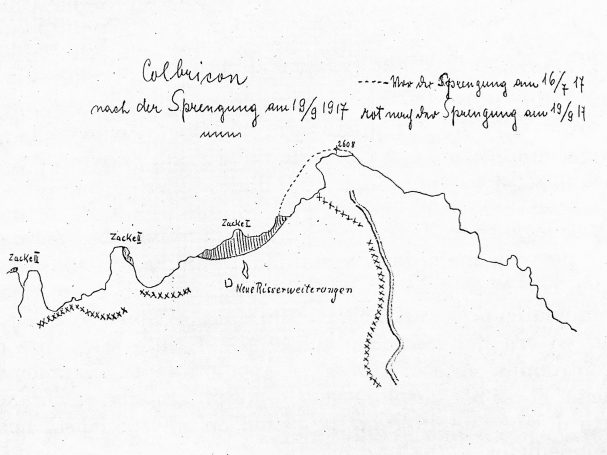 Colbricon
nach der Sprengung am 19/9 1917
----- Vor der Sprengung am 16/7 17
rot nach der Sprengung am 19/9 17
2604
Zacke I
Zacke II
Zacke III
Neue Risserweiterungen